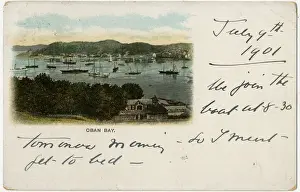 July 9th
1901
We join the
boat at 8-30
OBAN BAY.
tomorrow morning - So I must
get to bed -